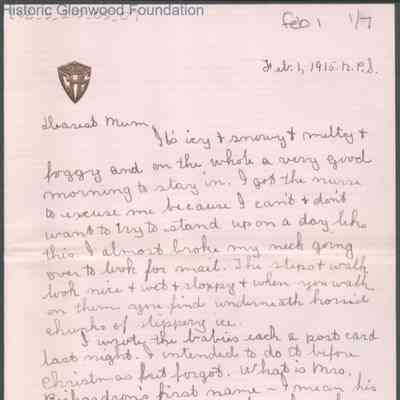 Historic Glenwood Foundation
feb 1 1/7
Feb. 1, 1915. N.P.S.
Dearest Mum,
It's icy & snowy & melty &
foggy and on the whole a very good
morning to stay in. I got the nurse
to excuse me because I can't & don't
want to try to stand upon a day like
this. I almost broke my neck going
over to look for mail. The steps & walk
look nice & wet & sloppy & when you walk
on them you find underneath horrid
chunks of slippery ice.
I wrote the babies each a post card
last night. I intended to do it before
Christmas but forgot. What is Mrs.
Richardson's first name - I mean his